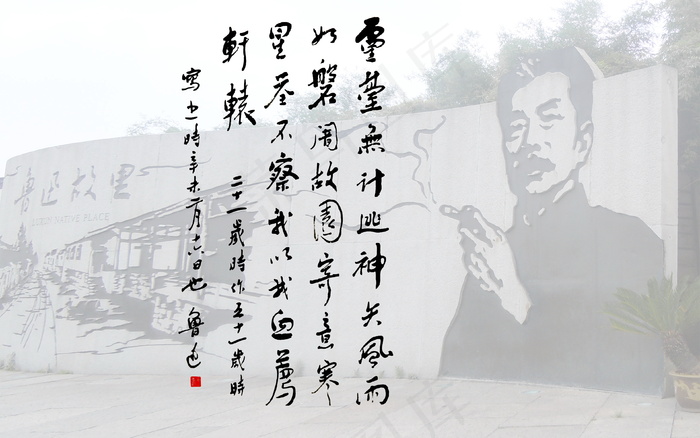 靈臺無計逃神矢風雨
如磐闇故園寄意寒
星荃不察我以我血薦
軒轅
二十一歲時作五十一歲時
寫之時辛未二月十六日也 魯迅
魯迅故里
LUXUN NATIVE PLACE